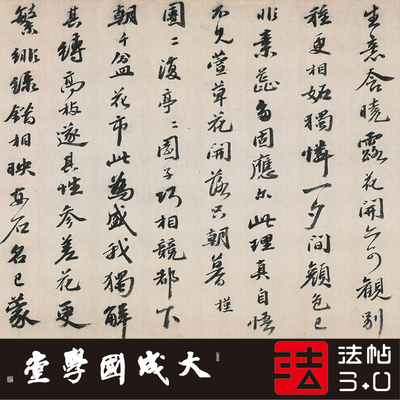 生意含曉露花開亦可観別
種更相妬獨憐一夕間顏色已
非素蕊為固應尔此理真自悟
不見萱草花開落只朝暮槿
園二復亭二園子巧相競都下
朝千盆花市此為盛我獨解
其縛高枝遂其性參差花更
繁緋綠錯相映石名已蒙
大成國學堂
法
法帖
3.0